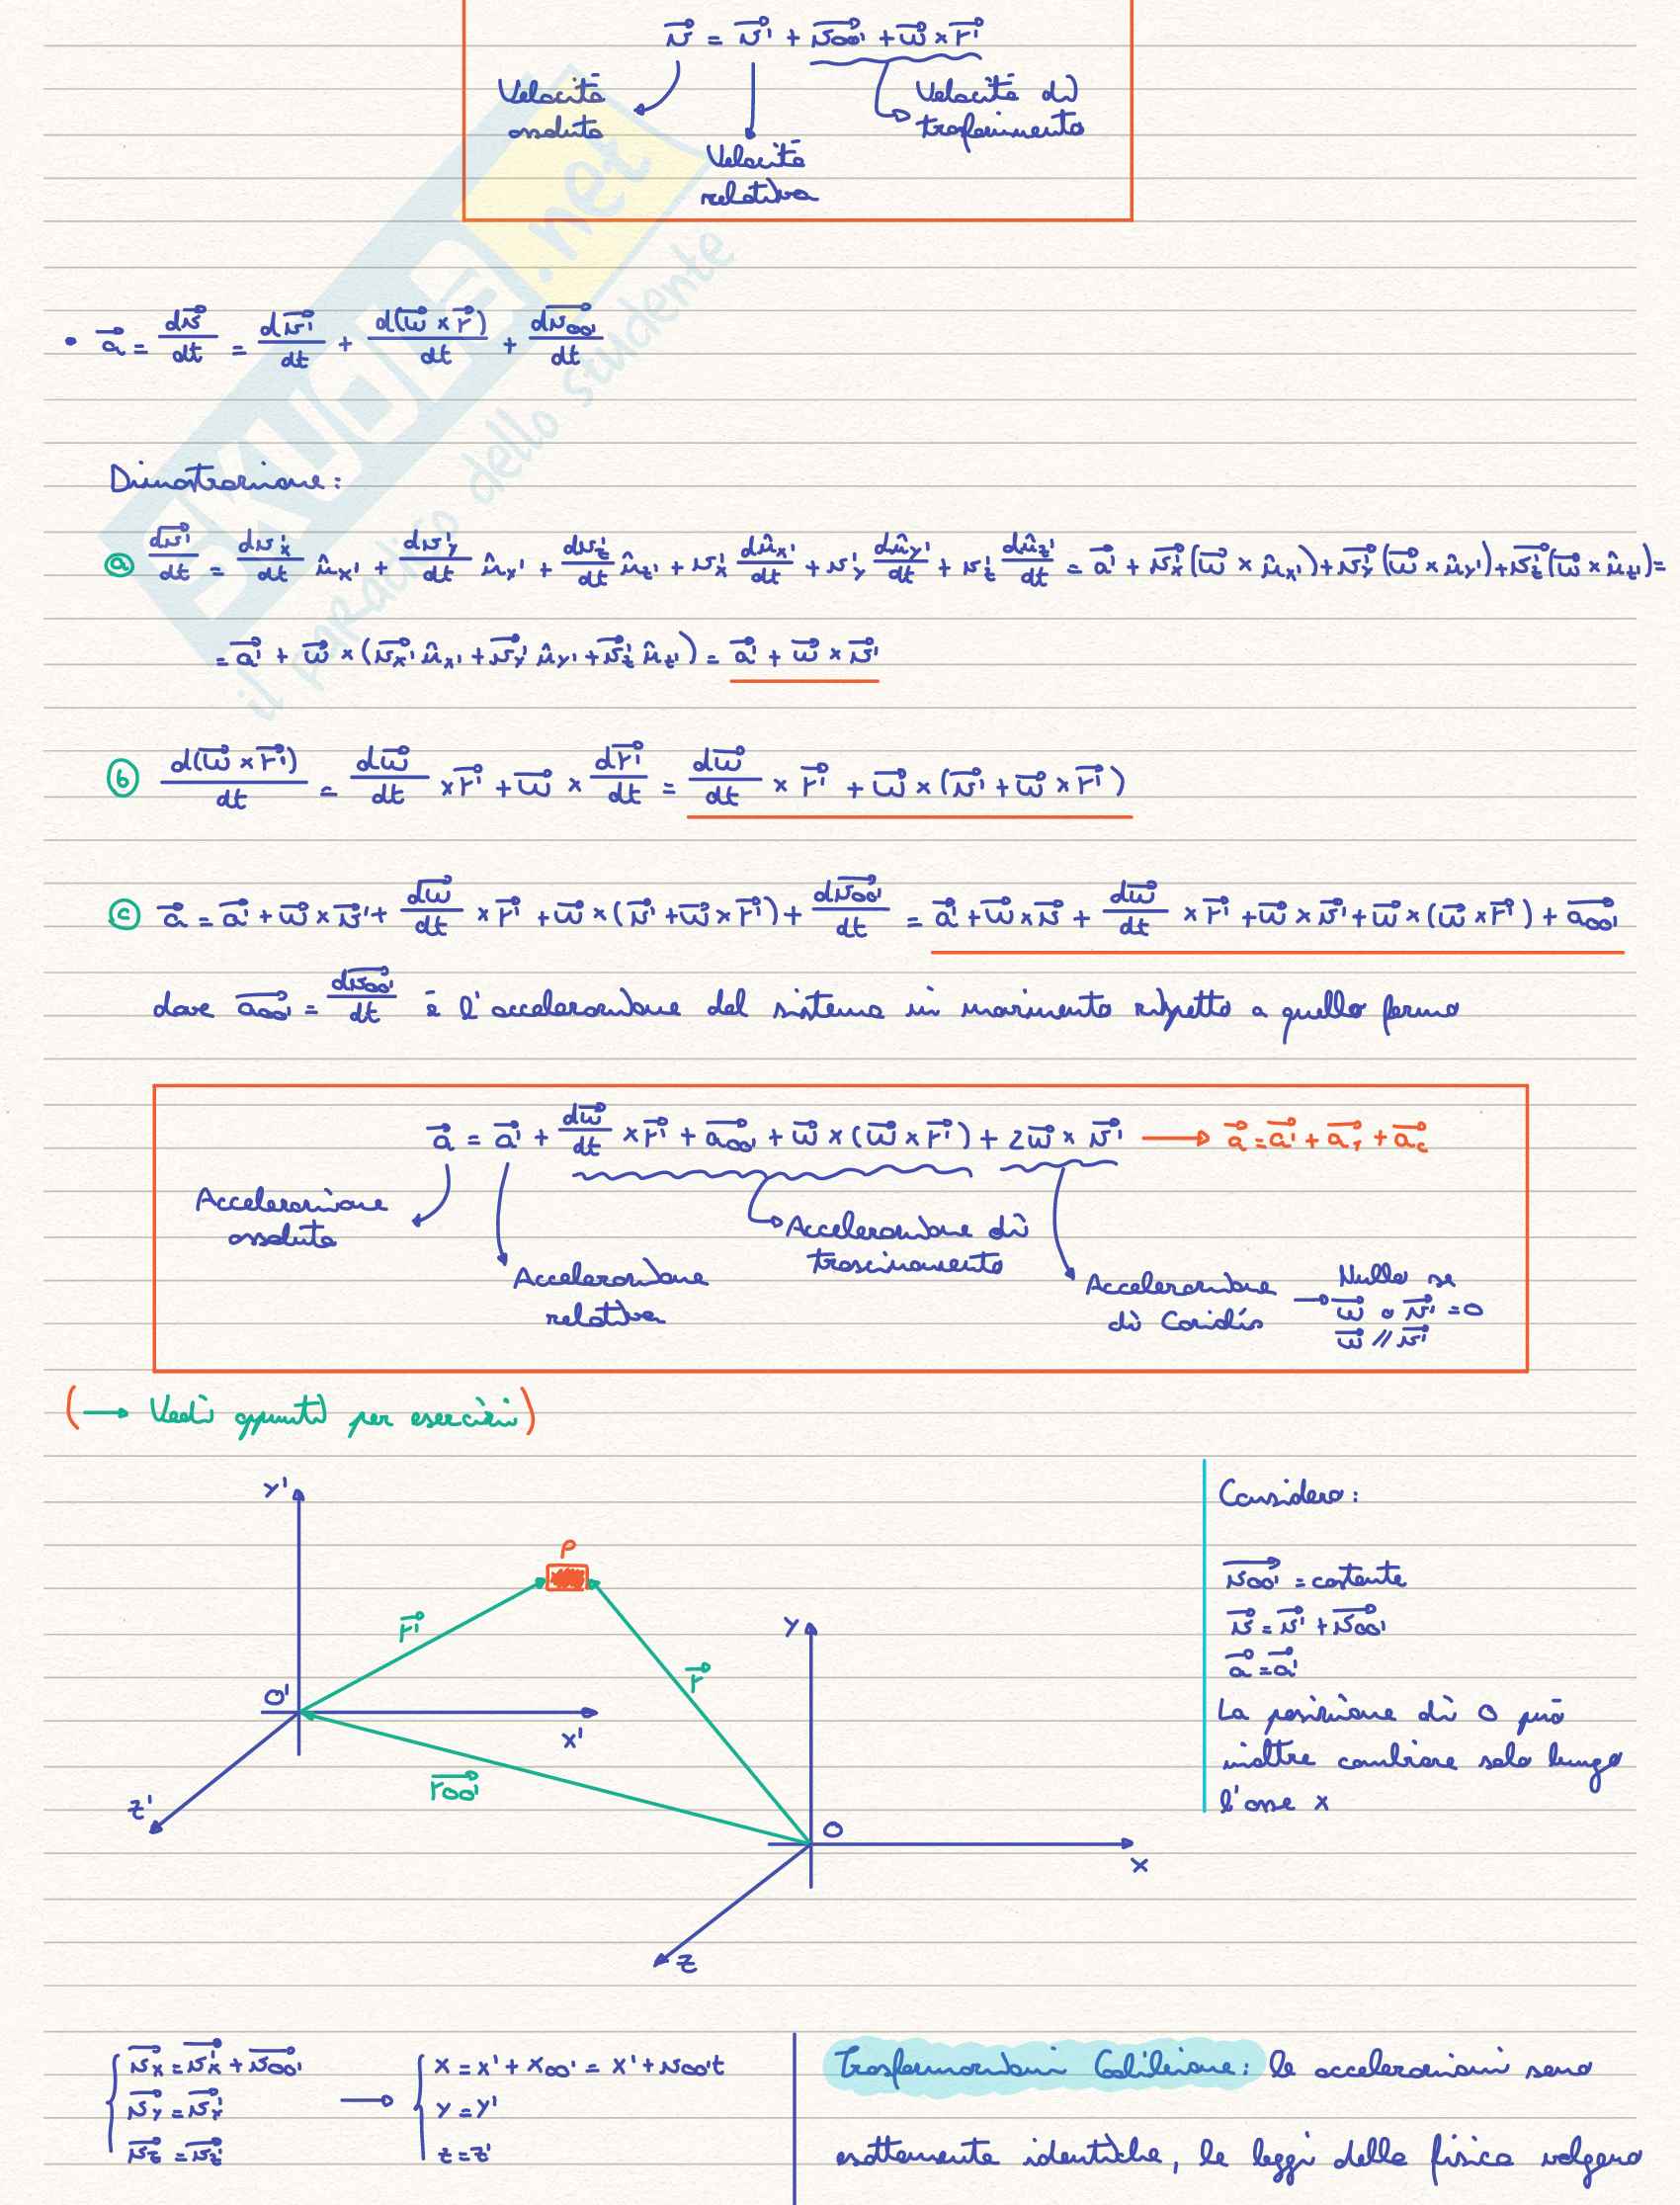 v⃗ = v⃗' + v⃗oo' + ω⃗ × r⃗'
Velocità assoluta
Velocità di trasferimento
Velocità relativa
SKUOLA.net
il paradiso dello studente
• a⃗ = dv⃗/dt = dv⃗'/dt + d(ω⃗ × r⃗)/dt + dv⃗oo'/dt
Dimostrazione:
ⓐ dv⃗'/dt = dv'x/dt ûx' + dv'y/dt ûy' + dv'z/dt ûz' + v'x dûx'/dt + v'y dûy'/dt + v'z dûz'/dt = a⃗' + v⃗'x (ω⃗ × ûx') + v⃗'y (ω⃗ × ûy') + v⃗'z (ω⃗ × ûz') =
= a⃗' + ω⃗ × (v⃗x' ûx' + v⃗y' ûy' + v⃗z' ûz') = a⃗' + ω⃗ × v⃗'
ⓑ d(ω⃗ × r⃗')/dt = dω⃗/dt × r⃗' + ω⃗ × dr⃗'/dt = dω⃗/dt × r⃗' + ω⃗ × (v⃗' + ω⃗ × r⃗')
ⓒ a⃗ = a⃗' + ω⃗ × v⃗' + dω⃗/dt × r⃗' + ω⃗ × (v⃗' + ω⃗ × r⃗') + dv⃗oo'/dt = a⃗' + ω⃗ × v⃗ + dω⃗/dt × r⃗' + ω⃗ × v⃗' + ω⃗ × (ω⃗ × r⃗') + a⃗oo'
dove a⃗oo' = dv⃗oo'/dt è l'accelerazione del sistema in movimento rispetto a quello fermo
a⃗ = a⃗' + dω⃗/dt × r⃗' + a⃗oo' + ω⃗ × (ω⃗ × r⃗') + 2ω⃗ × v⃗' → a⃗ = a⃗' + a⃗T + a⃗c
Accelerazione assoluta
Accelerazione relativa
Accelerazione di trascinamento
Accelerazione di Coriolis → Nulla se
ω⃗ o v⃗' = 0
ω⃗ // v⃗'
(→ Vedi appunti per esercizi)
y'
P
r⃗'
O'
x'
z'
r⃗oo'
y
r⃗
O
x
z
Considero:
v⃗oo' = costante
v⃗ = v⃗' + v⃗oo'
a⃗ = a⃗'
La posizione di O può
inoltre cambiare solo lungo
l'asse x
v⃗x = v⃗'x + v⃗oo'
v⃗y = v⃗'y
v⃗z = v⃗'z
→
x = x' + xoo' = x' + voo't
y = y'
z = z'
Trasformazioni Galileiane: le accelerazioni sono
esattamente identiche, le leggi della fisica valgono